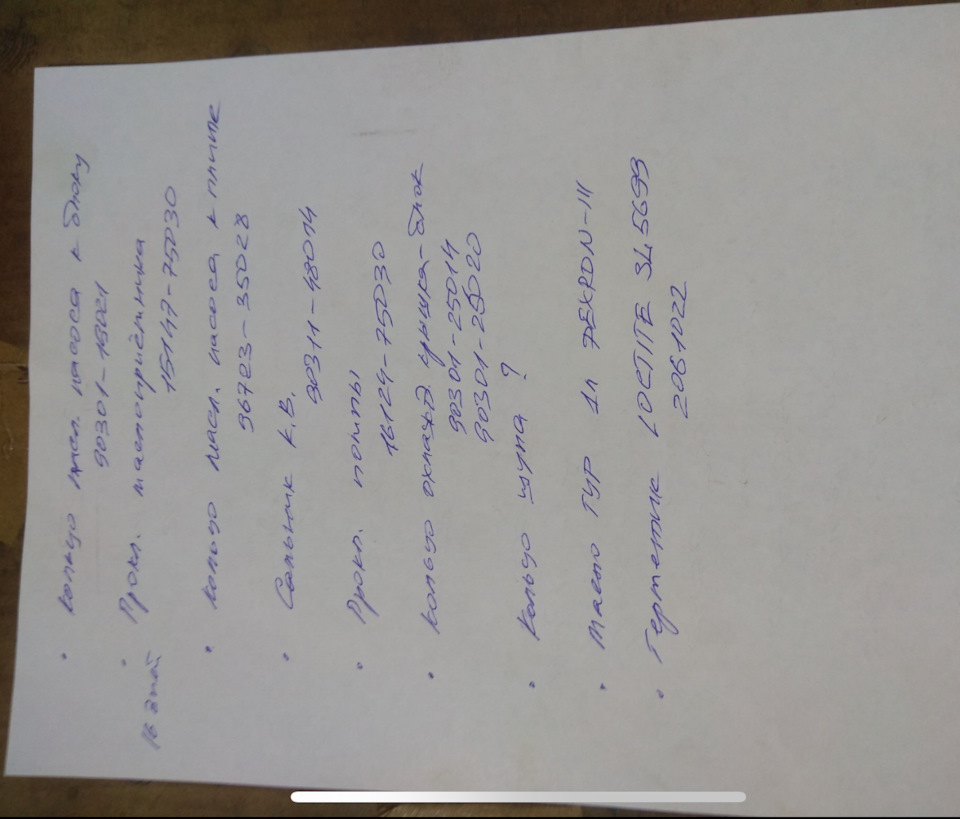 • Кольцо масл. насоса к блоку
90301-19021
• Прокл. маслоприёмника
16 дней 15147-75030
• Кольцо масл. насоса к плите
96723-35028
• Сальник К.В.
90311-48014
• Прокл. помпы
16124-75030
• Кольцо охлажд. крышка-блок
90301-25014
90301-25020
• Кольцо щупа ?
• Масло ГУР 1л DEXRON-III
• Герметик LOCTITE SI 5699
2061022